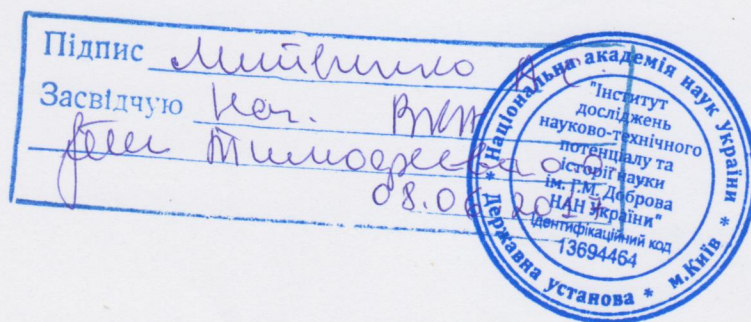 Підпис Литвинко А.С.
Засвідчую Нач. ВКК
Тимофєєва О.О.
08.06.2017
* Національна академія наук України * м.Київ * Державна установа
"Інститут
досліджень
науково-технічного
потенціалу та
історії науки
ім. Г.М. Доброва
НАН України"
Ідентифікаційний код
13694464